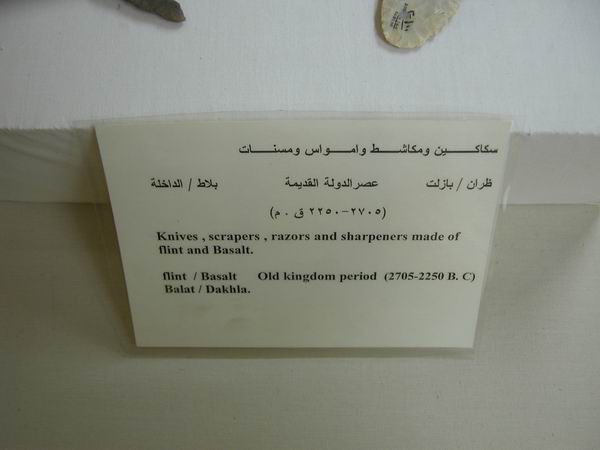 سكاكين ومكاشط وامواس ومسنات
ظران / بازلت عصر الدولة القديمة بلاط / الداخلة
(٢٧٠٥-٢٢٥٠ ق . م)
Knives , scrapers , razors and sharpeners made of
flint and Basalt.
flint / Basalt Old kingdom period (2705-2250 B. C)
Balat / Dakhla.